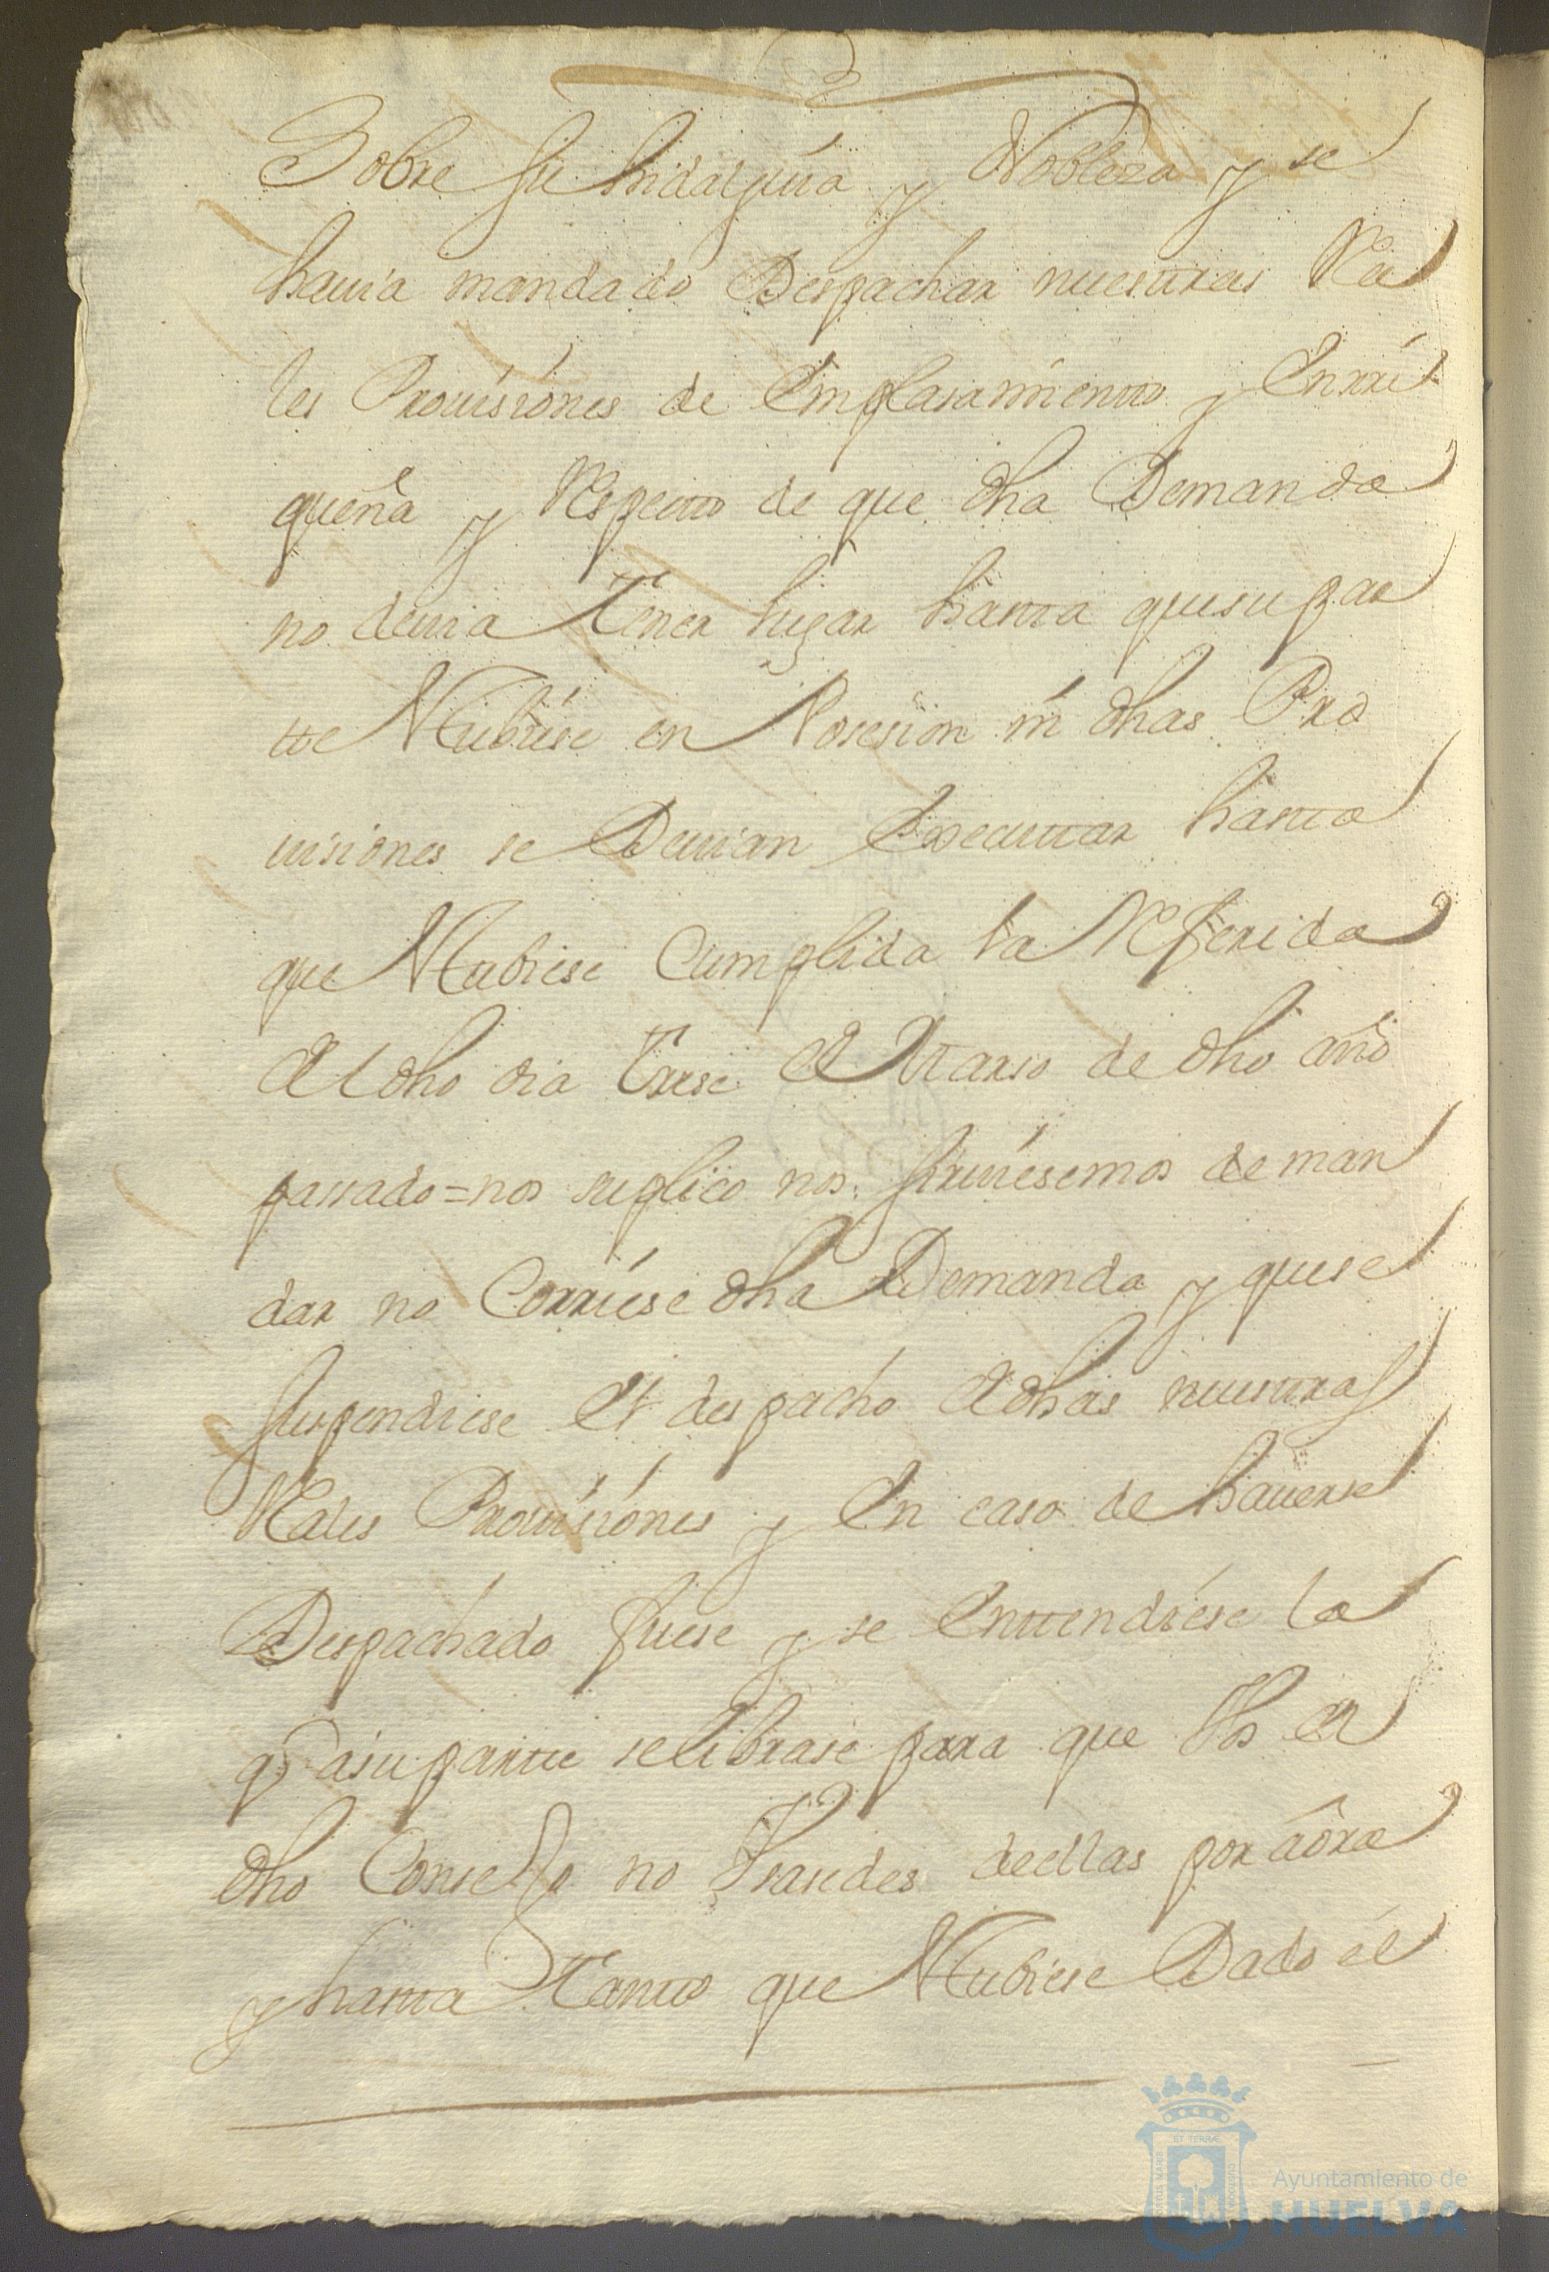 Sobre su hidalguia y Nobleza y se
havia mandado Despachar nuestras Rea
les Provisiones de Emplasamientto y Enrri
queña y Respectto de que dha Demanda
no devia Tener lugar hasta que su par
tte sttubiese en Posesion ni dhas Pro
visiones se Devian Executtar hasta
que sttubiese Cumplida la Referida
el dho dia Trese de Marso de dho año
passado = nos suplico nos sirviesemos de man
dar no Corriese dha Demanda y que se
suspendiese el despacho de dhas nuestras
Reales Provisiones y en caso de haverse
Despachado fuese y se Enttendiese la
q̃ a su partte se librase para que Vos el
dho Consejo no Vsasedes de ellas por aora
y hasta Tantto que sttubiese Dado el
Ayuntamiento de
HUELVA